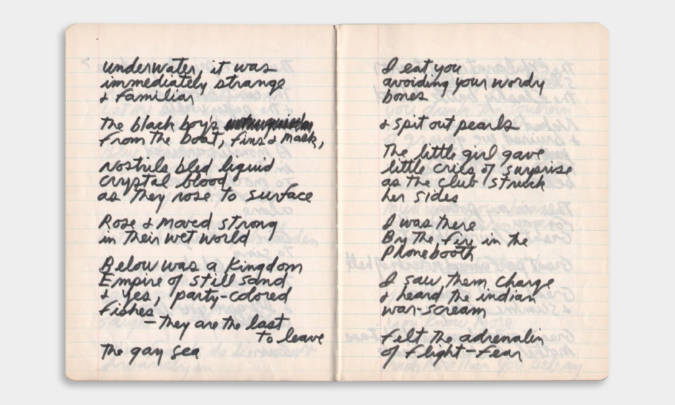 underwater it was
immediately strange
& Familiar
The black boy's
From the boat, Fins & Mask,
Nostrils bled liquid
crystal blood
as they rose to surface
Rose & moved strong
in their wet world
Below was a Kingdom
Empire of still sand
& yes, party-colored
Fishes
—They are the last
to leave
The gay sea
I eat you
avoiding your wordy
bones
& spit out pearls
The little girl gave
little cries of surprise
as the club struck
her sides
I was there
By the fire in the
Phonebooth
I saw them charge
& heard the indian
war-scream
Felt the adrenalin
of Flight-Fear